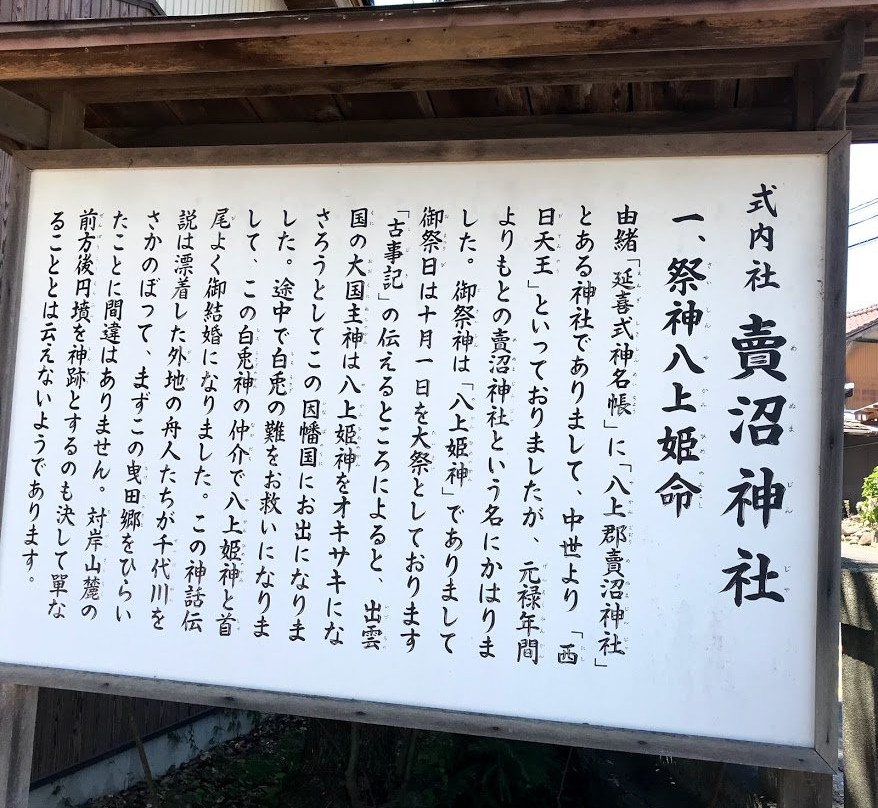 式内社 賣沼神社
一、祭神八上姫命
由緒「延喜式神名帳」に「八上郡賣沼神社」
とある神社でありまして、中世より「西
日天王」といっておりましたが、元禄年間
よりもとの賣沼神社という名にかはりま
した。御祭神は「八上姫神」でありまして
御祭日は十月一日を大祭としております
「古事記」の伝えるところによると、出雲
国の大国主神は八上姫神をオキサキにな
さろうとしてこの因幡国にお出になりま
した。途中で白兎の難をお救いになりま
して、この白兎神の仲介で八上姫神と首
尾よく御結婚になりました。この神話伝
説は漂着した外地の舟人たちが千代川を
さかのぼって、まずこの曳田郷をひらい
たことに間違はありません。対岸山麓の
前方後円墳を神跡とするのも決して單な
ることとは云えないようであります。